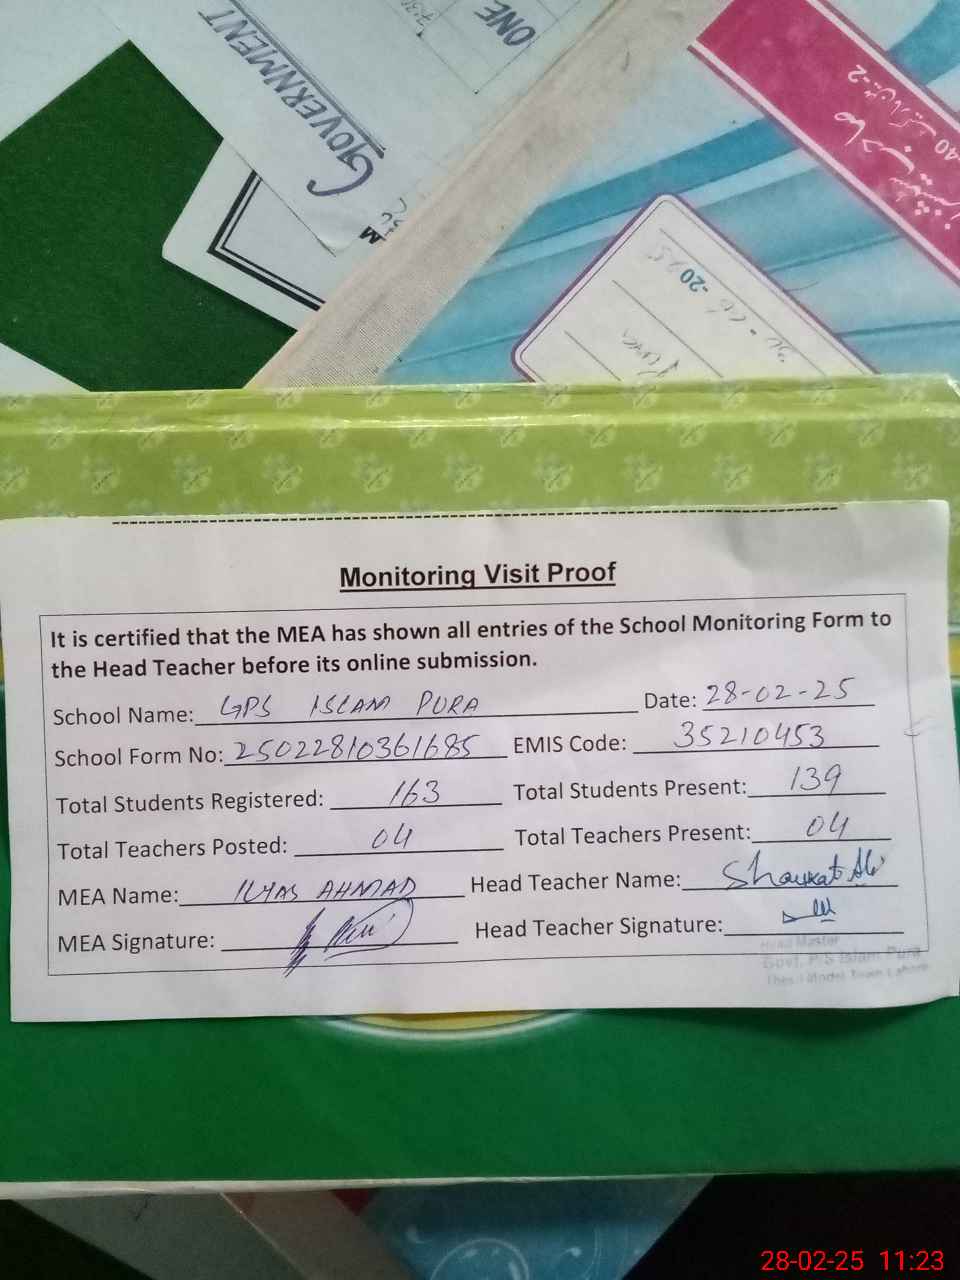 GOVERNMENT
ONE
-2025
Monitoring Visit Proof
It is certified that the MEA has shown all entries of the School Monitoring Form to
the Head Teacher before its online submission.
School Name: GPS ISLAM PURA Date: 28-02-25
School Form No: 25022810361685 EMIS Code: 35210453
Total Students Registered: 163 Total Students Present: 139
Total Teachers Posted: 04 Total Teachers Present: 04
MEA Name: ILYAS AHMAD Head Teacher Name: Shaukat Ali
MEA Signature: Head Teacher Signature:
Head Master
Govt. P/S Islam Pura
Model Town Lahore
28-02-25 11:23